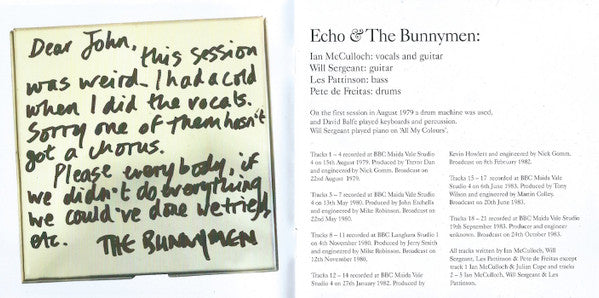 Dear John, this session
was weird. I had a cold
when I did the vocals.
Sorry one of them hasn't
got a chorus.
Please everybody, if
we didn't do everything
we could've done we tried,
etc. THE BUNNYMEN
Echo & The Bunnymen:
Ian McCulloch: vocals and guitar
Will Sergeant: guitar
Les Pattinson: bass
Pete de Freitas: drums
On the first session in August 1979 a drum machine was used,
and David Balfe played keyboards and percussion.
Will Sergeant played piano on 'All My Colours'.
Tracks 1 – 4 recorded at BBC Maida Vale Studio
4 on 15th August 1979. Produced by Trevor Dan
and engineered by Nick Gomm. Broadcast on
22nd August 1979.
Tracks 5 – 7 recorded at BBC Maida Vale Studio
4 on 13th May 1980. Produced by John Etchells
and engineered by Mike Robinson. Broadcast on
22nd May 1980.
Tracks 8 – 11 recorded at BBC Langham Studio 1
on 4th November 1980. Produced by Jerry Smith
and engineered by Mike Robinson. Broadcast on
12th November 1980.
Tracks 12 – 14 recorded at BBC Maida Vale
Studio 4 on 27th January 1982. Produced by
Kevin Howlett and engineered by Nick Gomm.
Broadcast on 8th February 1982.
Tracks 15 – 17 recorded at BBC Maida Vale Studio
4 on 6th June 1983. Produced by Tony
Wilson and engineered by Martin Colley.
Broadcast on 20th June 1983.
Tracks 18 – 21 recorded at BBC Maida Vale Studio
19th September 1983. Producer and engineer
unknown. Broadcast on 24th October 1983.
All tracks written by Ian McCulloch, Will
Sergeant, Les Pattinson & Pete de Freitas except
track 1 Ian McCulloch & Julian Cope and tracks
2 – 5 Ian McCulloch, Will Sergeant & Les
Pattinson.